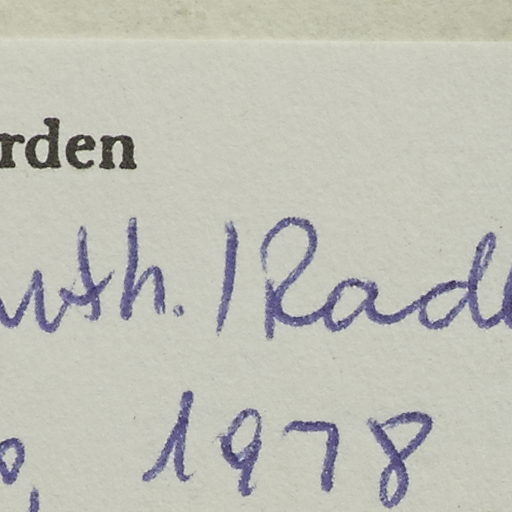 rden
uth. | Radl
o, 1978